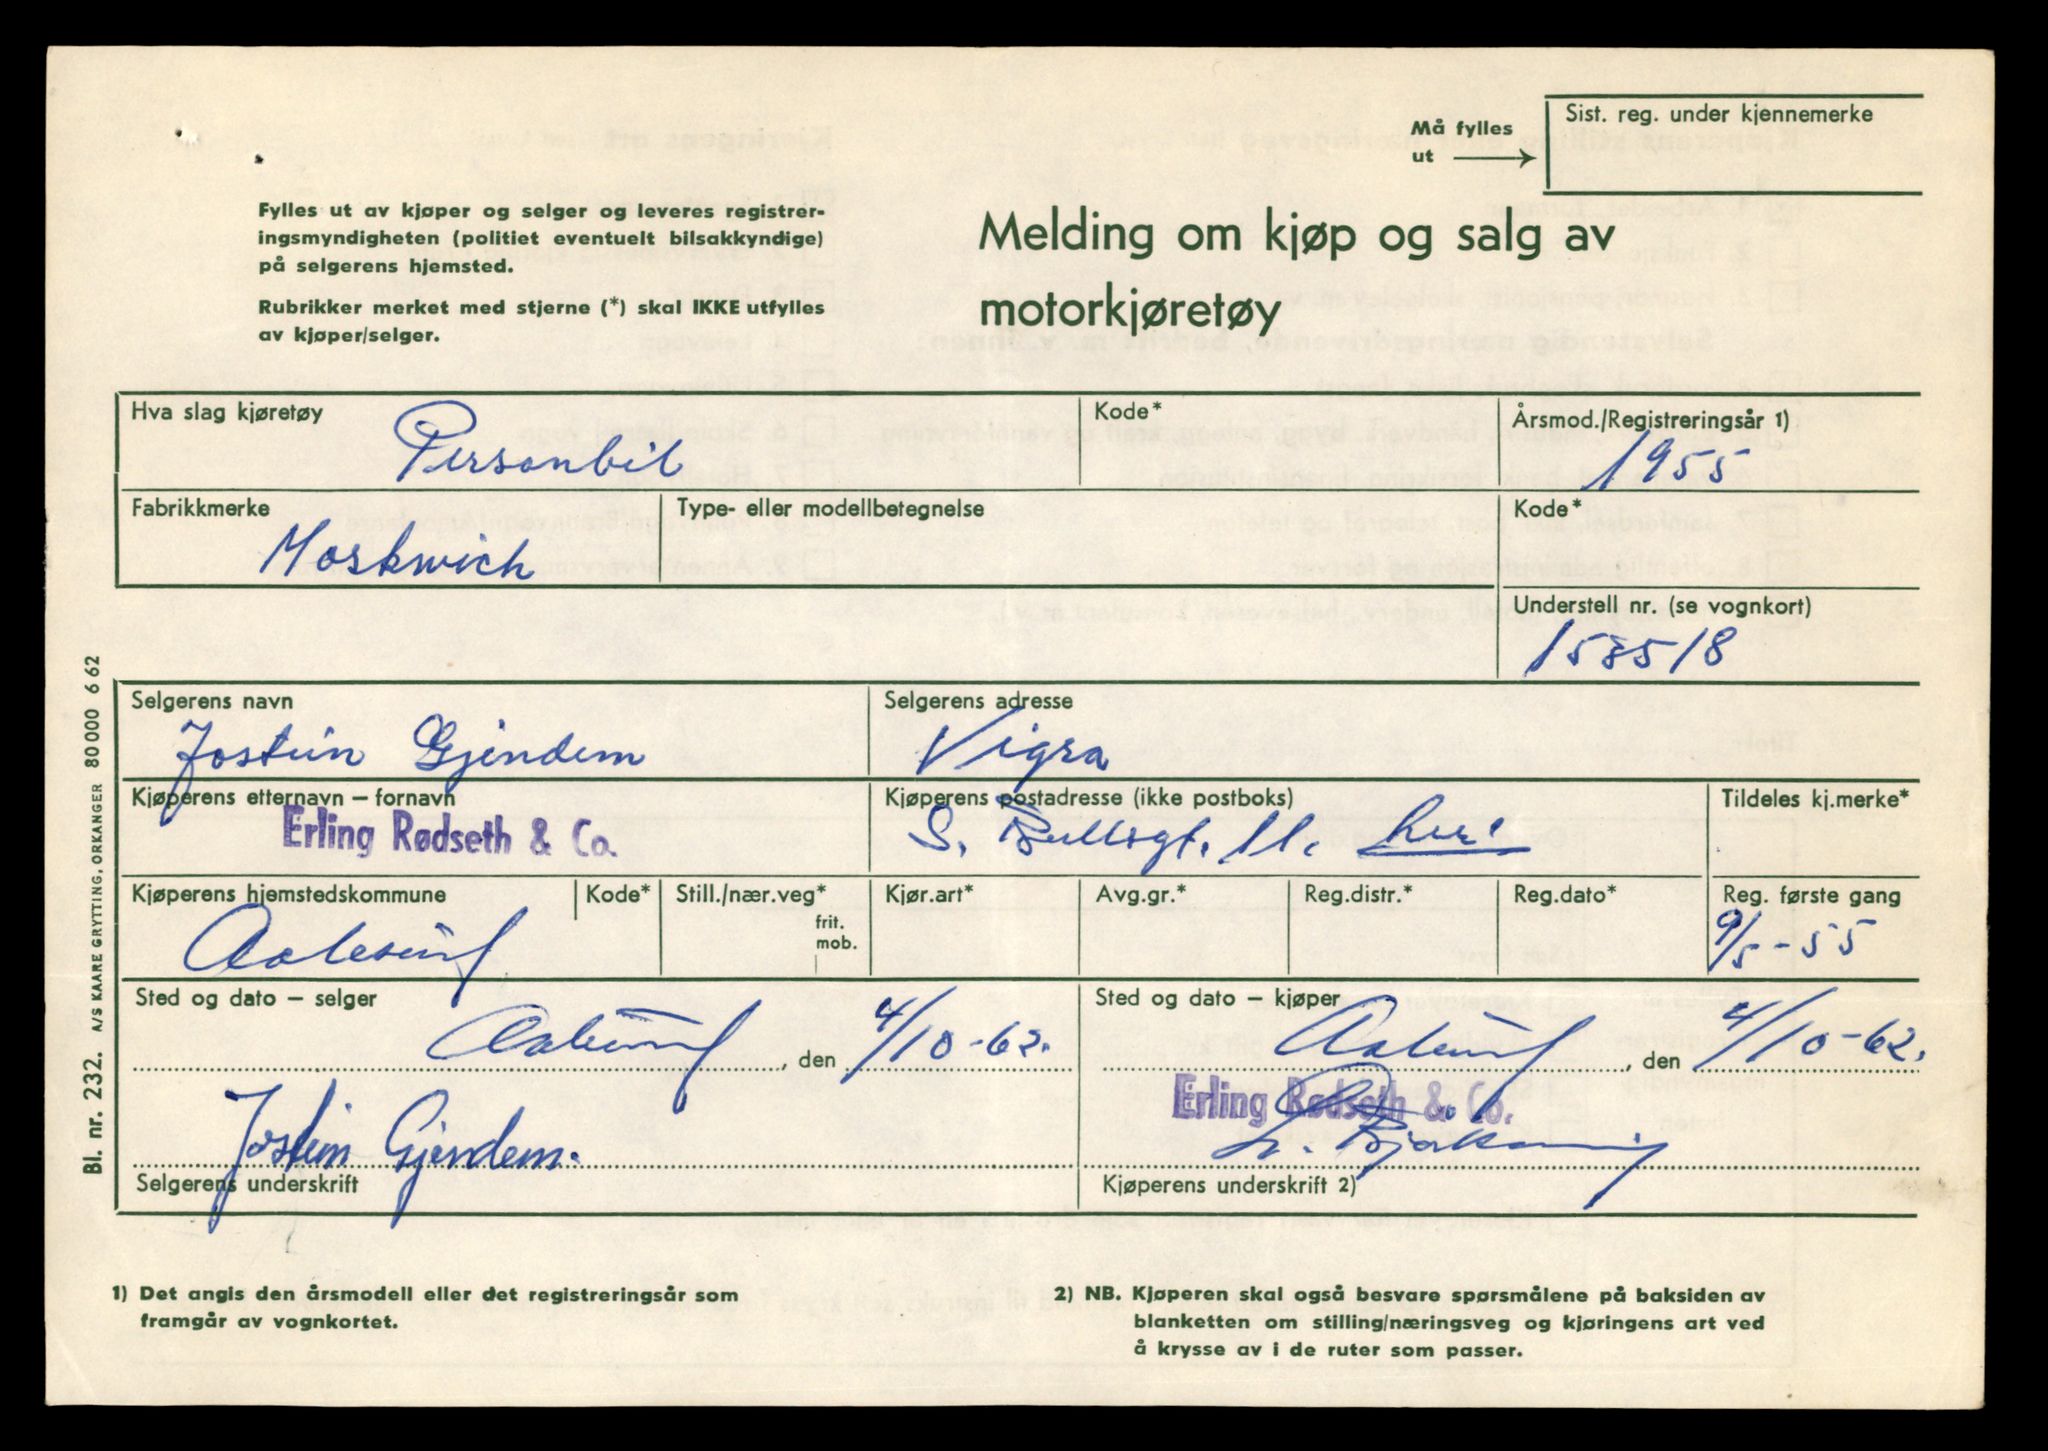 Må fylles
ut
Sist. reg. under kjennemerke
Fylles ut av kjøper og selger og leveres registrer-
ingsmyndigheten (politiet eventuelt bilsakkyndige)
på selgerens hjemsted.
Rubrikker merket med stjerne (*) skal IKKE utfylles
av kjøper/selger.
Melding om kjøp og salg av
motorkjøretøy
Hva slag kjøretøy
Personbil
Kode*
Årsmod./Registreringsår 1)
1955
Fabrikkmerke
Moskwich
Type- eller modellbetegnelse
Kode*
Understell nr. (se vognkort)
158518
Selgerens navn
Jostein Gjendem
Selgerens adresse
Vigra
Kjøperens etternavn – fornavn
Erling Rødseth & Co.
Kjøperens postadresse (ikke postboks)
S. Bullsgt. 11. her
Tildeles kj.merke*
Kjøperens hjemstedskommune
Aalesund
Kode*
Still./nær.veg*
frit.
mob.
Kjør.art*
Avg.gr.*
Reg.distr.*
Reg.dato*
Reg. første gang
9/5-55
Sted og dato – selger
Aalesund, den 4/10-62.
Jostein Gjendem.
Selgerens underskrift
Sted og dato – kjøper
Aalesund, den 4/10-62.
Erling Rødseth & Co.
Kjøperens underskrift 2)
1) Det angis den årsmodell eller det registreringsår som
framgår av vognkortet.
2) NB. Kjøperen skal også besvare spørsmålene på baksiden av
blanketten om stilling/næringsveg og kjøringens art ved
å krysse av i de ruter som passer.
Bl. nr. 232. A/S KAARE GRYTTING, ORKANGER 80 000 6 62